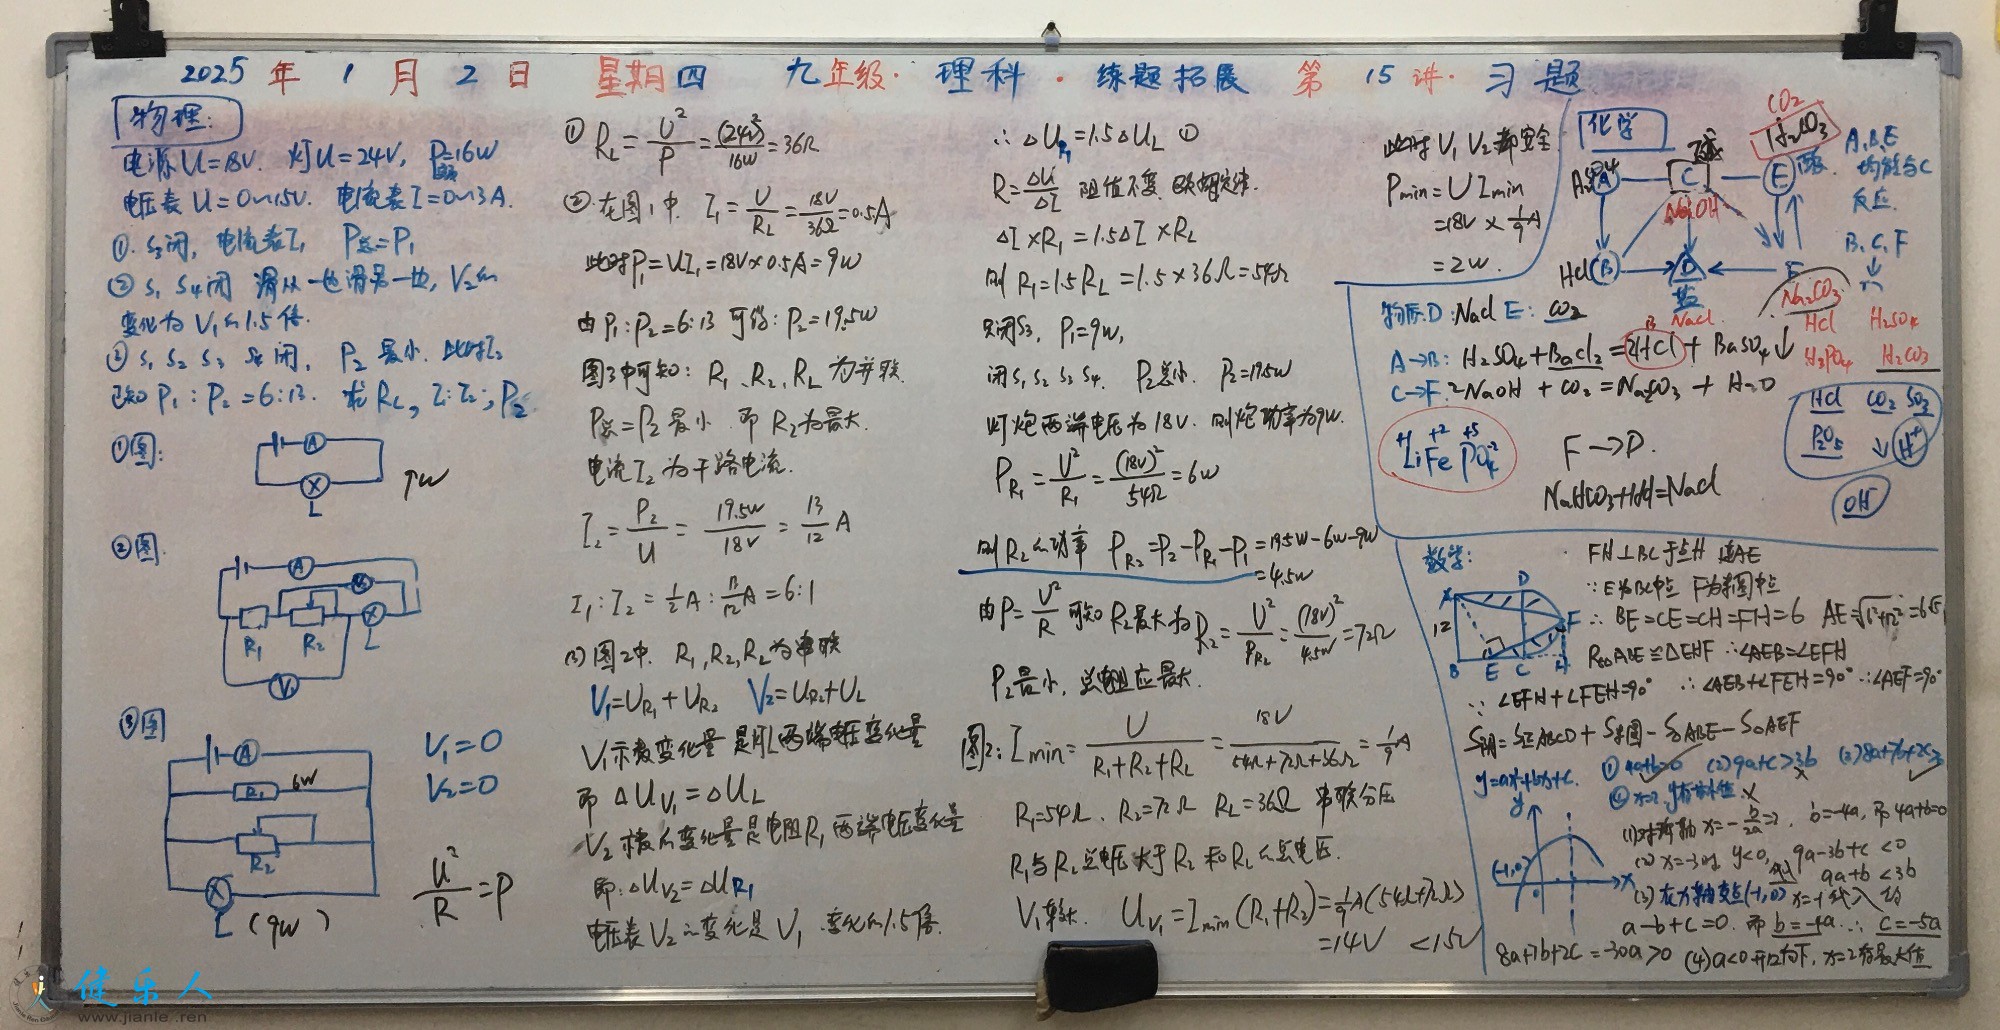 2025年1月2日 星期四 九年级·理科·练题拓展 第15讲·习题
物理:
电源U=18V. 灯U=24V, P=16W
电压表U=0~15V. 电流表I=0~3A.
①. S3闭, 电流表I1 P总=P1
② S1 S4闭 滑从一边滑另一边, V2的
变化为V1的1.5倍.
③ S1 S2 S3 S4闭, P2最小. 此时I2
已知P1:P2=6:13. 求RL, I1:I2, P2
①图:
A
L
9W
②图.
A
R1
R2
L
V1
③图
A
R1
6W
R2
L (9W)
V1=0
V2=0
U²/R=P
① RL=U²/P=(24V)²/16W=36Ω
②.在图1中. I1=U/RL=18V/36Ω=0.5A
此时P1=UI1=18V×0.5A=9W
由P1:P2=6:13 可得: P2=19.5W
图3中可知: R1、R2、RL为并联.
P总=P2最小 即R2为最大.
电流I2为干路电流.
I2=P2/U=19.5W/18V=13/12A
I1:I2=1/2A:13/12A=6:1
(3)图2中. R1,R2,RL为串联
V1=UR1+UR2 V2=UR2+UL
V1示数变化量是灯L两端电压变化量
即 ΔUV1=ΔUL
V2示数的变化量是电阻R1两端电压变化量
即:ΔUV2=ΔUR1
电压表V2的变化是V1变化的1.5倍.
∴ΔUR1=1.5ΔUL ①
R=ΔU/ΔI 阻值不变 欧姆定律.
ΔI×R1=1.5ΔI×RL
则R1=1.5RL=1.5×36Ω=54Ω
只闭S3, P1=9W,
闭S1 S2 S3 S4. P2总小. P2=19.5W
灯泡两端电压为18V. 则灯泡功率为9W.
PR1=U²/R1=(18V)²/54Ω=6W
则R2的功率 PR2=P2-PR1-P1=19.5W-6W-9W
=4.5W
由P=U²/R 可知R2最大为R2=U²/PR2=(18V)²/4.5W=72Ω
P2最小, 总电阻应最大.
图2: Imin=U/R1+R2+RL=18V/54Ω+72Ω+36Ω=1/9A
R1=54Ω、R2=72Ω RL=36Ω 串联分压
R1与R2总电压大于R2和RL的总电压.
V1较大. UV1=Imin(R1+R2)=1/9A(54Ω+72Ω)
=14V <15V
此时V1 V2都安全
Pmin=UImin
=18V×1/9A
=2W.
化学
A
C
碱
NaOH
CO2
H2CO3
E
酸.
HCl B
D
盐
NaCl
F
Na2CO3
A,B,E
均能与C
反应.
B,C,F
↓
HCl H2SO4
H3PO4 H2CO3
物质D:NaCl E: CO2
A→B: H2SO4+BaCl2=2HCl+BaSO4↓
C→F. 2NaOH+CO2=Na2CO3+H2O
+1 +2 +5 -2
LiFePO4
F→D.
NaHCO3+HCl=NaCl
HCl CO2 SO3
P2O5 ↓ H+
OH
数学:
A
D
F
12
B E C H
FH⊥BC于点H 连AE
∵E为BC中点 F为半圆中点
∴BE=CE=CH=FH=6 AE=√6²+12²=6√5
Rt△ABE≌△EHF ∴∠AEB=∠EFH
∵∠EFH+∠FEH=90° ∴∠AEB+∠FEH=90° ∴∠AEF=90°
S阴=S正ABCD+S半圆-S△ABE-S△AEF
y=ax²+bx+c.
① 4a+b=0 ✓ (2)9a+c>3b × (3)8a+7b+2c>0 ✓
y
(-1,0)
0
x
(1)对称轴x=-b/2a=2. b=-4a, 即4a+b=0
(2) x=-3时 y<0, 9a-3b+c<0
(3)在x轴交点(-1,0) x=-1代入得
a-b+c=0. 即b=-4a. ∴ c=-5a
8a+7b+2c=-30a>0 (4)a<0开口向下, x=2有最大值
健乐人
www.jianle.ren